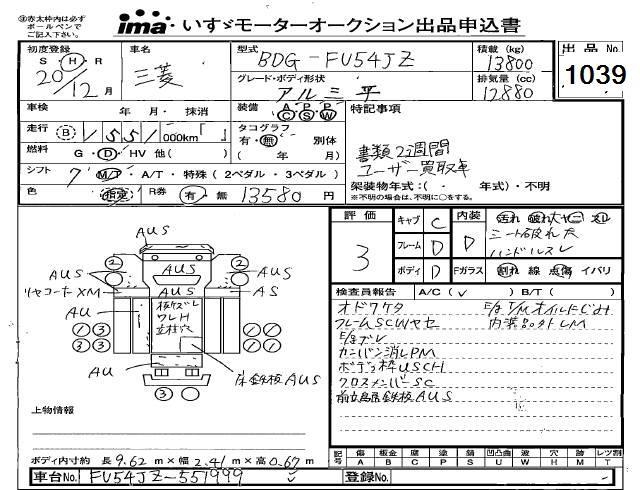 ※赤太枠内は必ず
ボールペンで
ご記入下さい。
ima いすゞモーターオークション出品申込書
初度登録
S・H・R
20/12月
車名
三菱
型式
BDG-FU54JZ
グレード・ボディ形状
アルミ平
積載 (kg)
13800
排気量 (cc)
12880
出品No.
1039
車検 年 月・ 抹消
装備 A/C P/S P/W
特記事項
走行 B 155 1,000km「 」
タコグラフ
有・無 別体
( 年 月)
書類2週間
ユーザー買取車
燃料 G・D・HV 他( )
シフト 7 M/T・A/T・特殊(2ペダル・3ペダル)
架装物年式:( ・ 年式)・不明
※不明の場合は、不明に○をする。
色 指定 R券 有・無 13580 円
評価
3
キャブ C
フレーム D
ボディ D
内装 D
汚れ 破れ 大 ヤニ スレ
シート破れ大
ハンドルスレ
Fガラス 割れ 線 点傷 イバリ
検査員報告 A/C(✓) B/T( )
オドワケタ
フレームSCWヤセ
E/gブレ
カンバン消しPM
ボデー枠USCH
クロスメンバーSC
前立鳥居鉄板AUS
E/g T/Mオイルにじみ
内装品外しM
AUS
②
②
AUS
AUS
AUS
AUS
AUS
リヤコーナーXM
AS
AU
板ズレ
ワレH
立柱穴
①③
①①
①③
①①
AU
床鉄板AUS
③
上物情報
ボディ内寸約 長 9.62 m×幅 2.41 m×高 0.67 m
記号 傷 板金 腐 塗 錆 凹凸曲 波 穴 外 レツ割
A B C P S U W H M T
車台No. FU54JZ-551999
登録No.